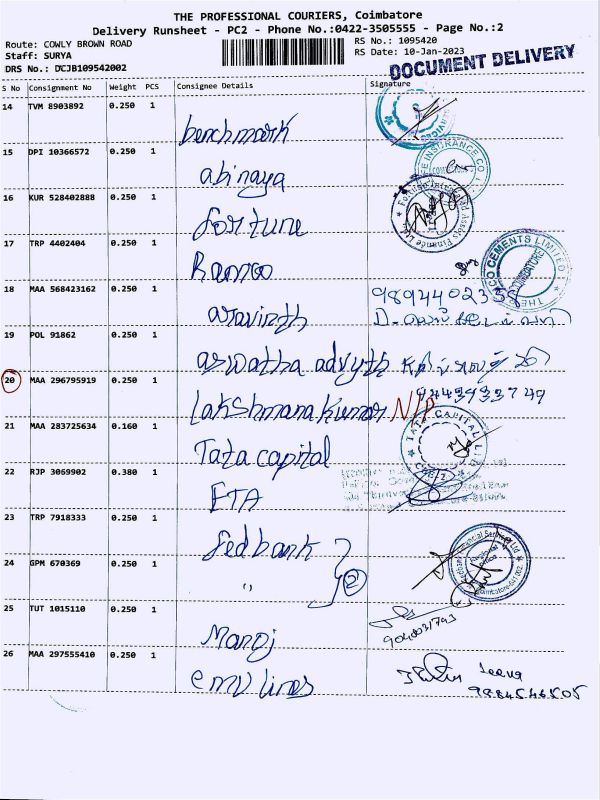 THE PROFESSIONAL COURIERS, Coimbatore
Delivery Runsheet - PC2 - Phone No.:0422-3505555 - Page No.:2
Route: COWLY BROWN ROAD
RS No.: 1095420
Staff: SURYA
RS Date: 10-Jan-2023
DRS No.: DCJB109542002
DOCUMENT DELIVERY
S No Consignment No Weight PCS Consignee Details Signature
14 TVM 8903892 0.250 1
benchmark
15 DPI 10366572 0.250 1
abinaya
INSURANCE CO.
16 KUR 528402888 0.250 1
fortune
17 TRP 4402404 0.250 1
Ramco
CO CEMENTS LIMITED
COIMBATORE
18 MAA 568423162 0.250 1
aravinth
9894402358
19 POL 91862 0.250 1
aswatha advyth
20 MAA 296795919 0.250 1
9443933749
Lakshmanakumar N/P
21 MAA 283725634 0.160 1
Tata capital
TATA CAPITAL
22 RJP 3069902 0.380 1
ETA
23 TRP 7918333 0.250 1
fedbank
24 GPM 670369 0.250 1
" 2
25 TUT 1015110 0.250 1
Manoj
26 MAA 297555410 0.250 1
emv lines
9884546505